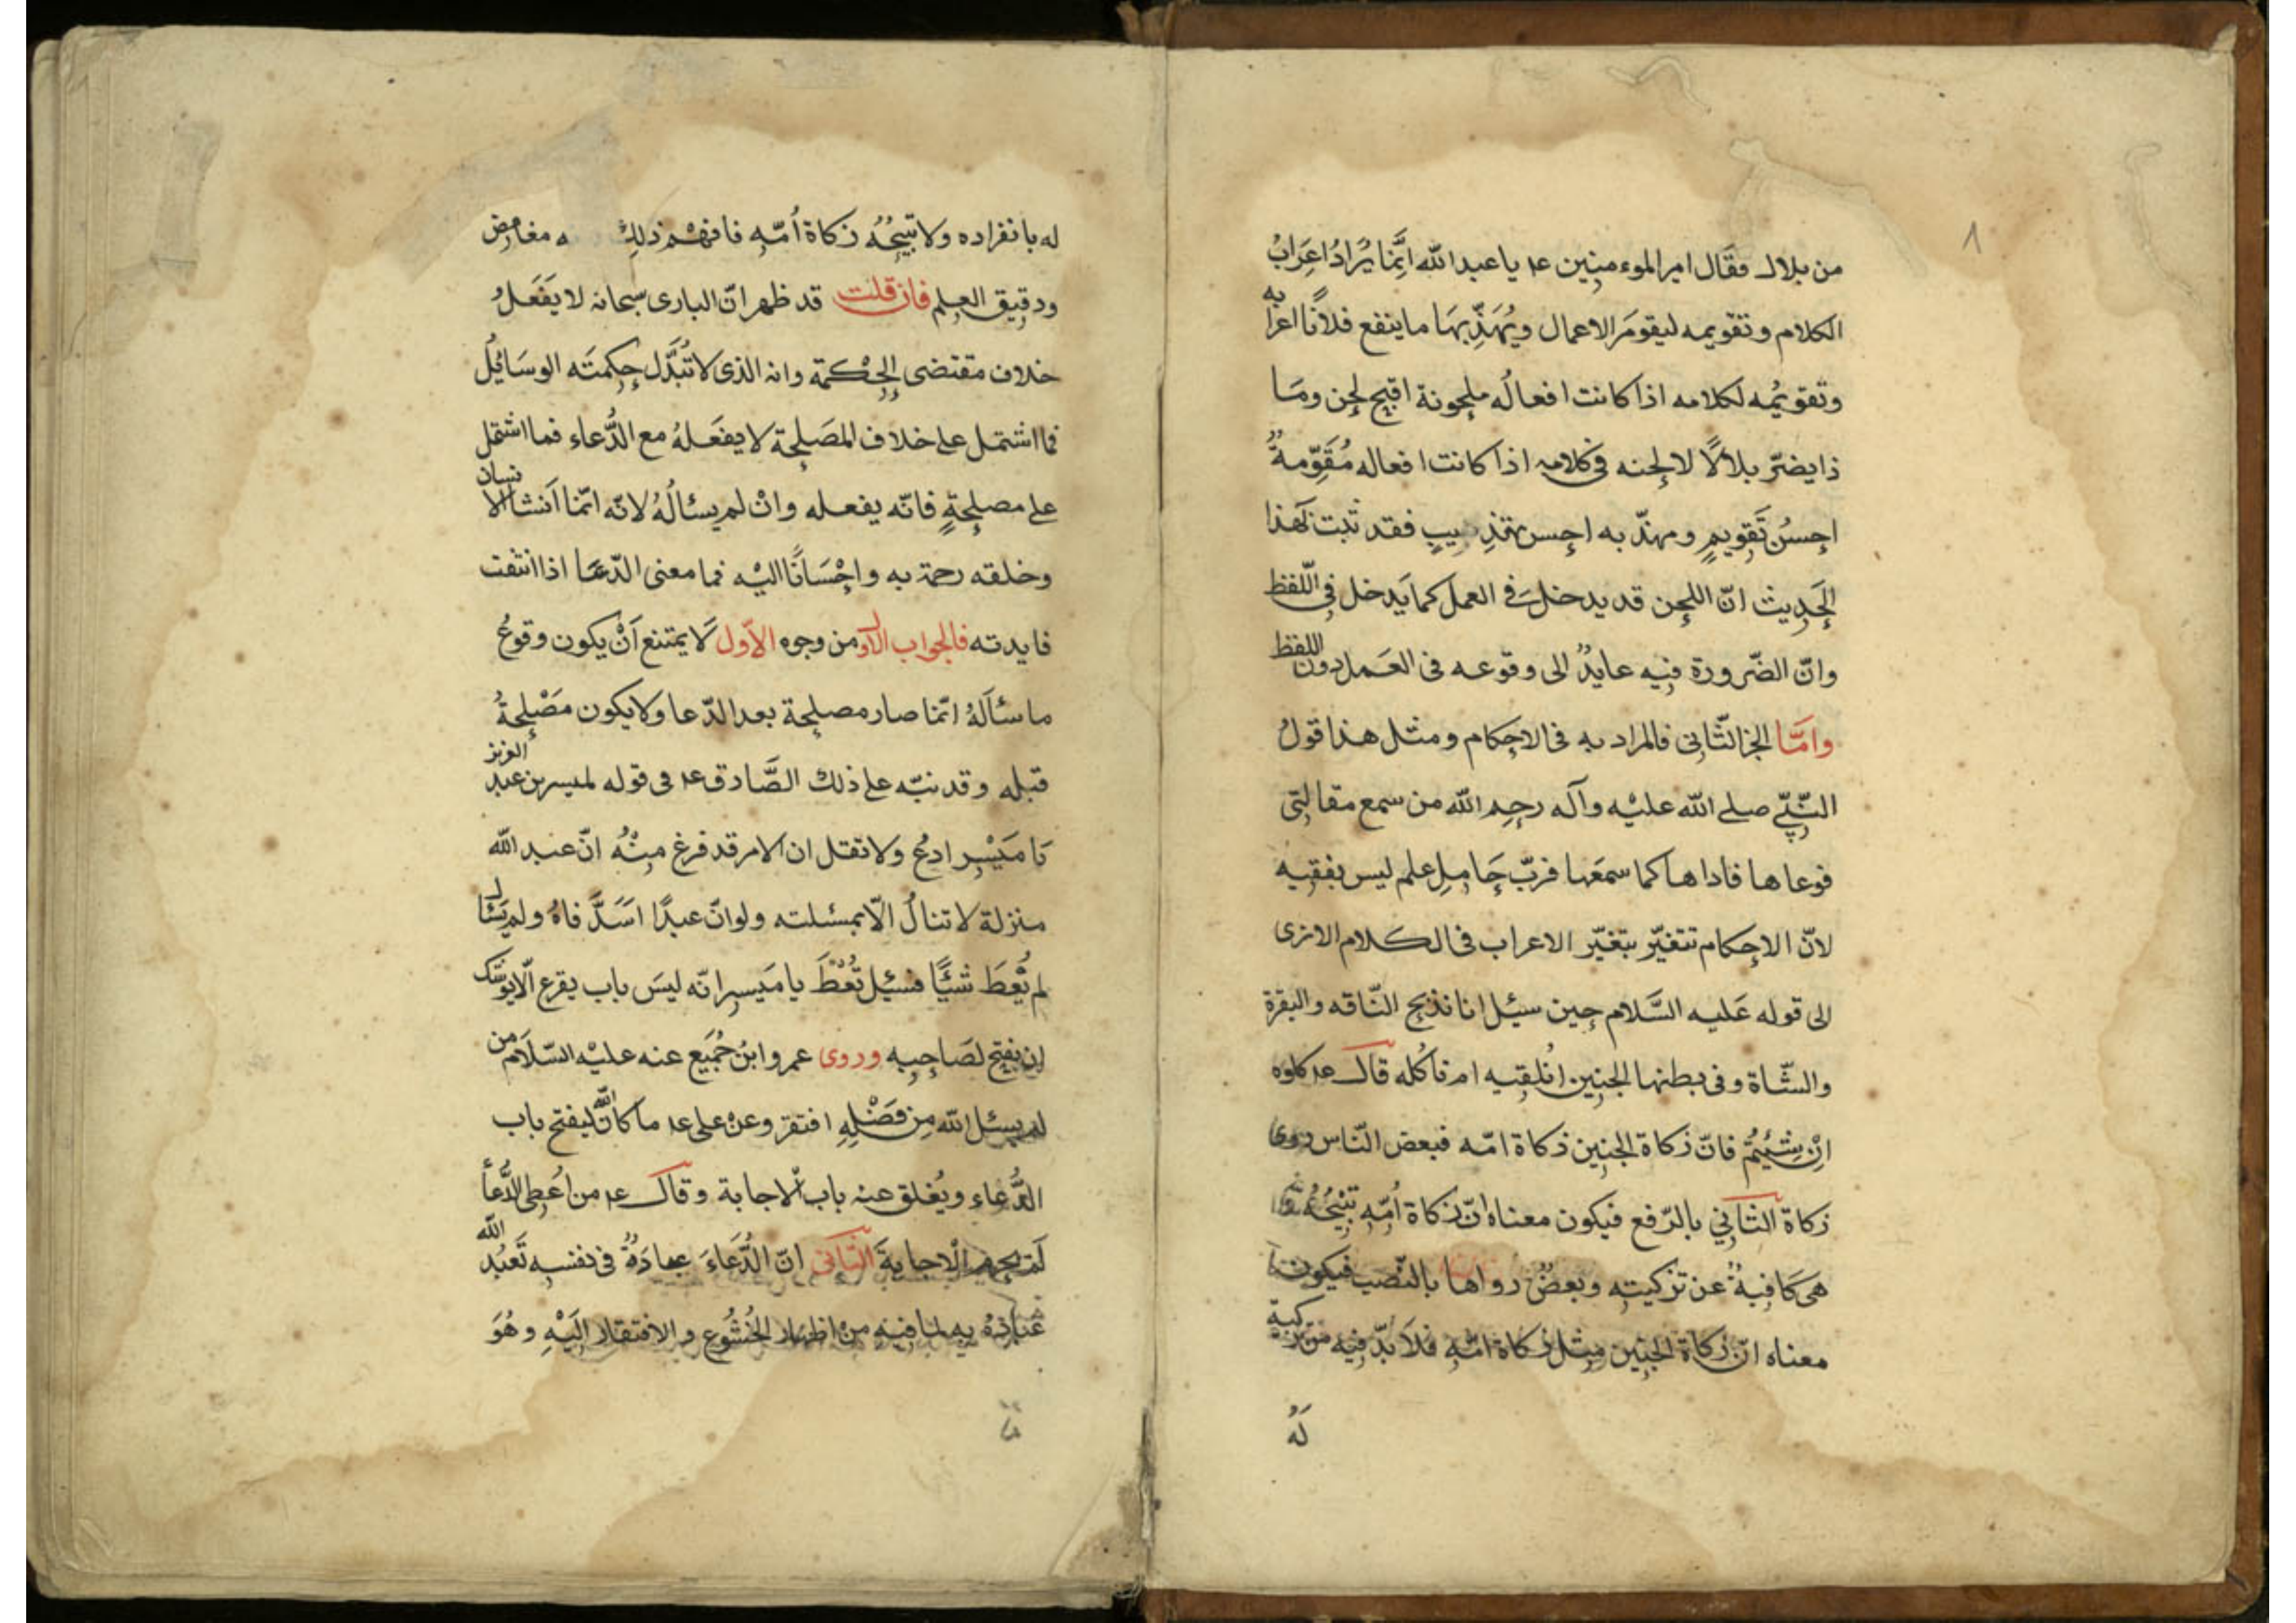 ٨
من بلال فقال امير الموءمنين عم يا عبد الله اِنَّما يُرَادُ اعِرَابُ
الكلام وتقويمه ليقومَ الاعمال ويُهَذِّبهَا ما ينفع فلانًا اعرا به
وتقويمُه لكلامه اذا كانت افعالُه ملحونة اقبح لحن ومَا
ذا يضرّ بلالًا لحنه فى كلامه اذا كانت افعاله مُقَوَّمةٌ
احسنُ تَقويمٍ ومهذّ به احسن تهذيبٍ فقد ثبت بهذا
الحَديث انّ اللحن قد يدخل فى العمل كما يَدخل فى اللّفظ
وانّ الضّرورة فيه عايدٌ الى وقوعه فى العَمل دون اللفظ
وامَّا الجز الثّانى فالمراد به فى الاحكام ومثل هذا قولُ
النّبىّ صلى الله عليْه وآله رحِم الله من سمع مقالتى
فوعاها فاداها كما سمعَها فربّ حَامِلِ علم ليس بفقيه
لانّ الاحكام تتغيّر بتغيّر الاعراب فى الكلام الا ترى
الى قوله عَليه السَّلام حِين سئِل انا نذبح النّاقه والبقرة
والشّاة وفى بطنها الجنِين اَنُلقِيه ام ناكُله قال عم كلوه
اِنْ شِئتُمْ فانّ زكاة الجنِين ذكاة امّه فبعض النّاس روى
زكاة الثانِي بالرّفع فيكون معناه انّ زكاة اُمّهِ تبْيحُهُ
هى كَافيةٌ عن تزكيته وبعضٌ رواها بالنّصب فيكون
معناه انّ زكاة الجنِين مِثل زكاة امّهِ فلا بدّ فيه من تزكية
لَهُ
له بانفراده ولا تبيحُهُ زكاة اُمّهِ فافهْم ذلك ه مغامض
ودقِيق العِلم فان قلت قد ظهر انّ البارى سبحانه لا يفَعَلُ
خلاف مقتضى الحِكْمة وانه الذى لا تُبَدَّل حِكمتَه الوسَائِلُ
فما اشتمل على خلاف المصَلحة لا يفعَلهُ مع الدُّعاء فما اشتمل
على مصلحةٍ فانّه يفعله وانْ لم يسئالُهُ لانّه انّما اَنشا الانسان
وخلقه رحمة به واحْسَانًا اليْه فما معنى الدّعَا اذا انتفت
فايدته فالجواب الاول من وجوه الاّول لَا يمتنع اَنْ يكون وقوعُ
ما سئاَلهُ انّما صار مصلحة بعد الدّعا ولا يكون مَصْلحةُ
قبله وقد نبّه على ذلك الصَّادق عم فى قوله لميسر بن عبد العزيز
يَا مَيَسْر ادعُ ولا تقل ان الامر قد فرغ مِنْهُ انّ عند الله
منزلة لا تنالُ الّا بمسئلته ولو انّ عبدًا اسَدَّ فاهُ ولم يَسْئال
لم يُعطَ شَيًّا فسئِل تُعْطَ يا مَيسر انّه ليسَ باب يقرع الّا يوشك
ان يفتح لصَاحِبِه وروى عمرو ابنُ جُمَيع عنه عليْه السّلام من
لم يسئل الله مِن فَضْلِهِ افتقر وعنْ على عم ما كان الله ليفتح باب
الدُّعاءِ ويُغلق عنه باب الاجابة وقال عم من اُعطى الدُّعاأ
لم يحرم الْاجابةَ الثانى انّ الدُّعَاءَ عبادَةٌ فى نفسه تَعبُد الله
عبادهُ به لما فيه من اظهار الخُشُوع والافتقار اليَهِ وهُوَ